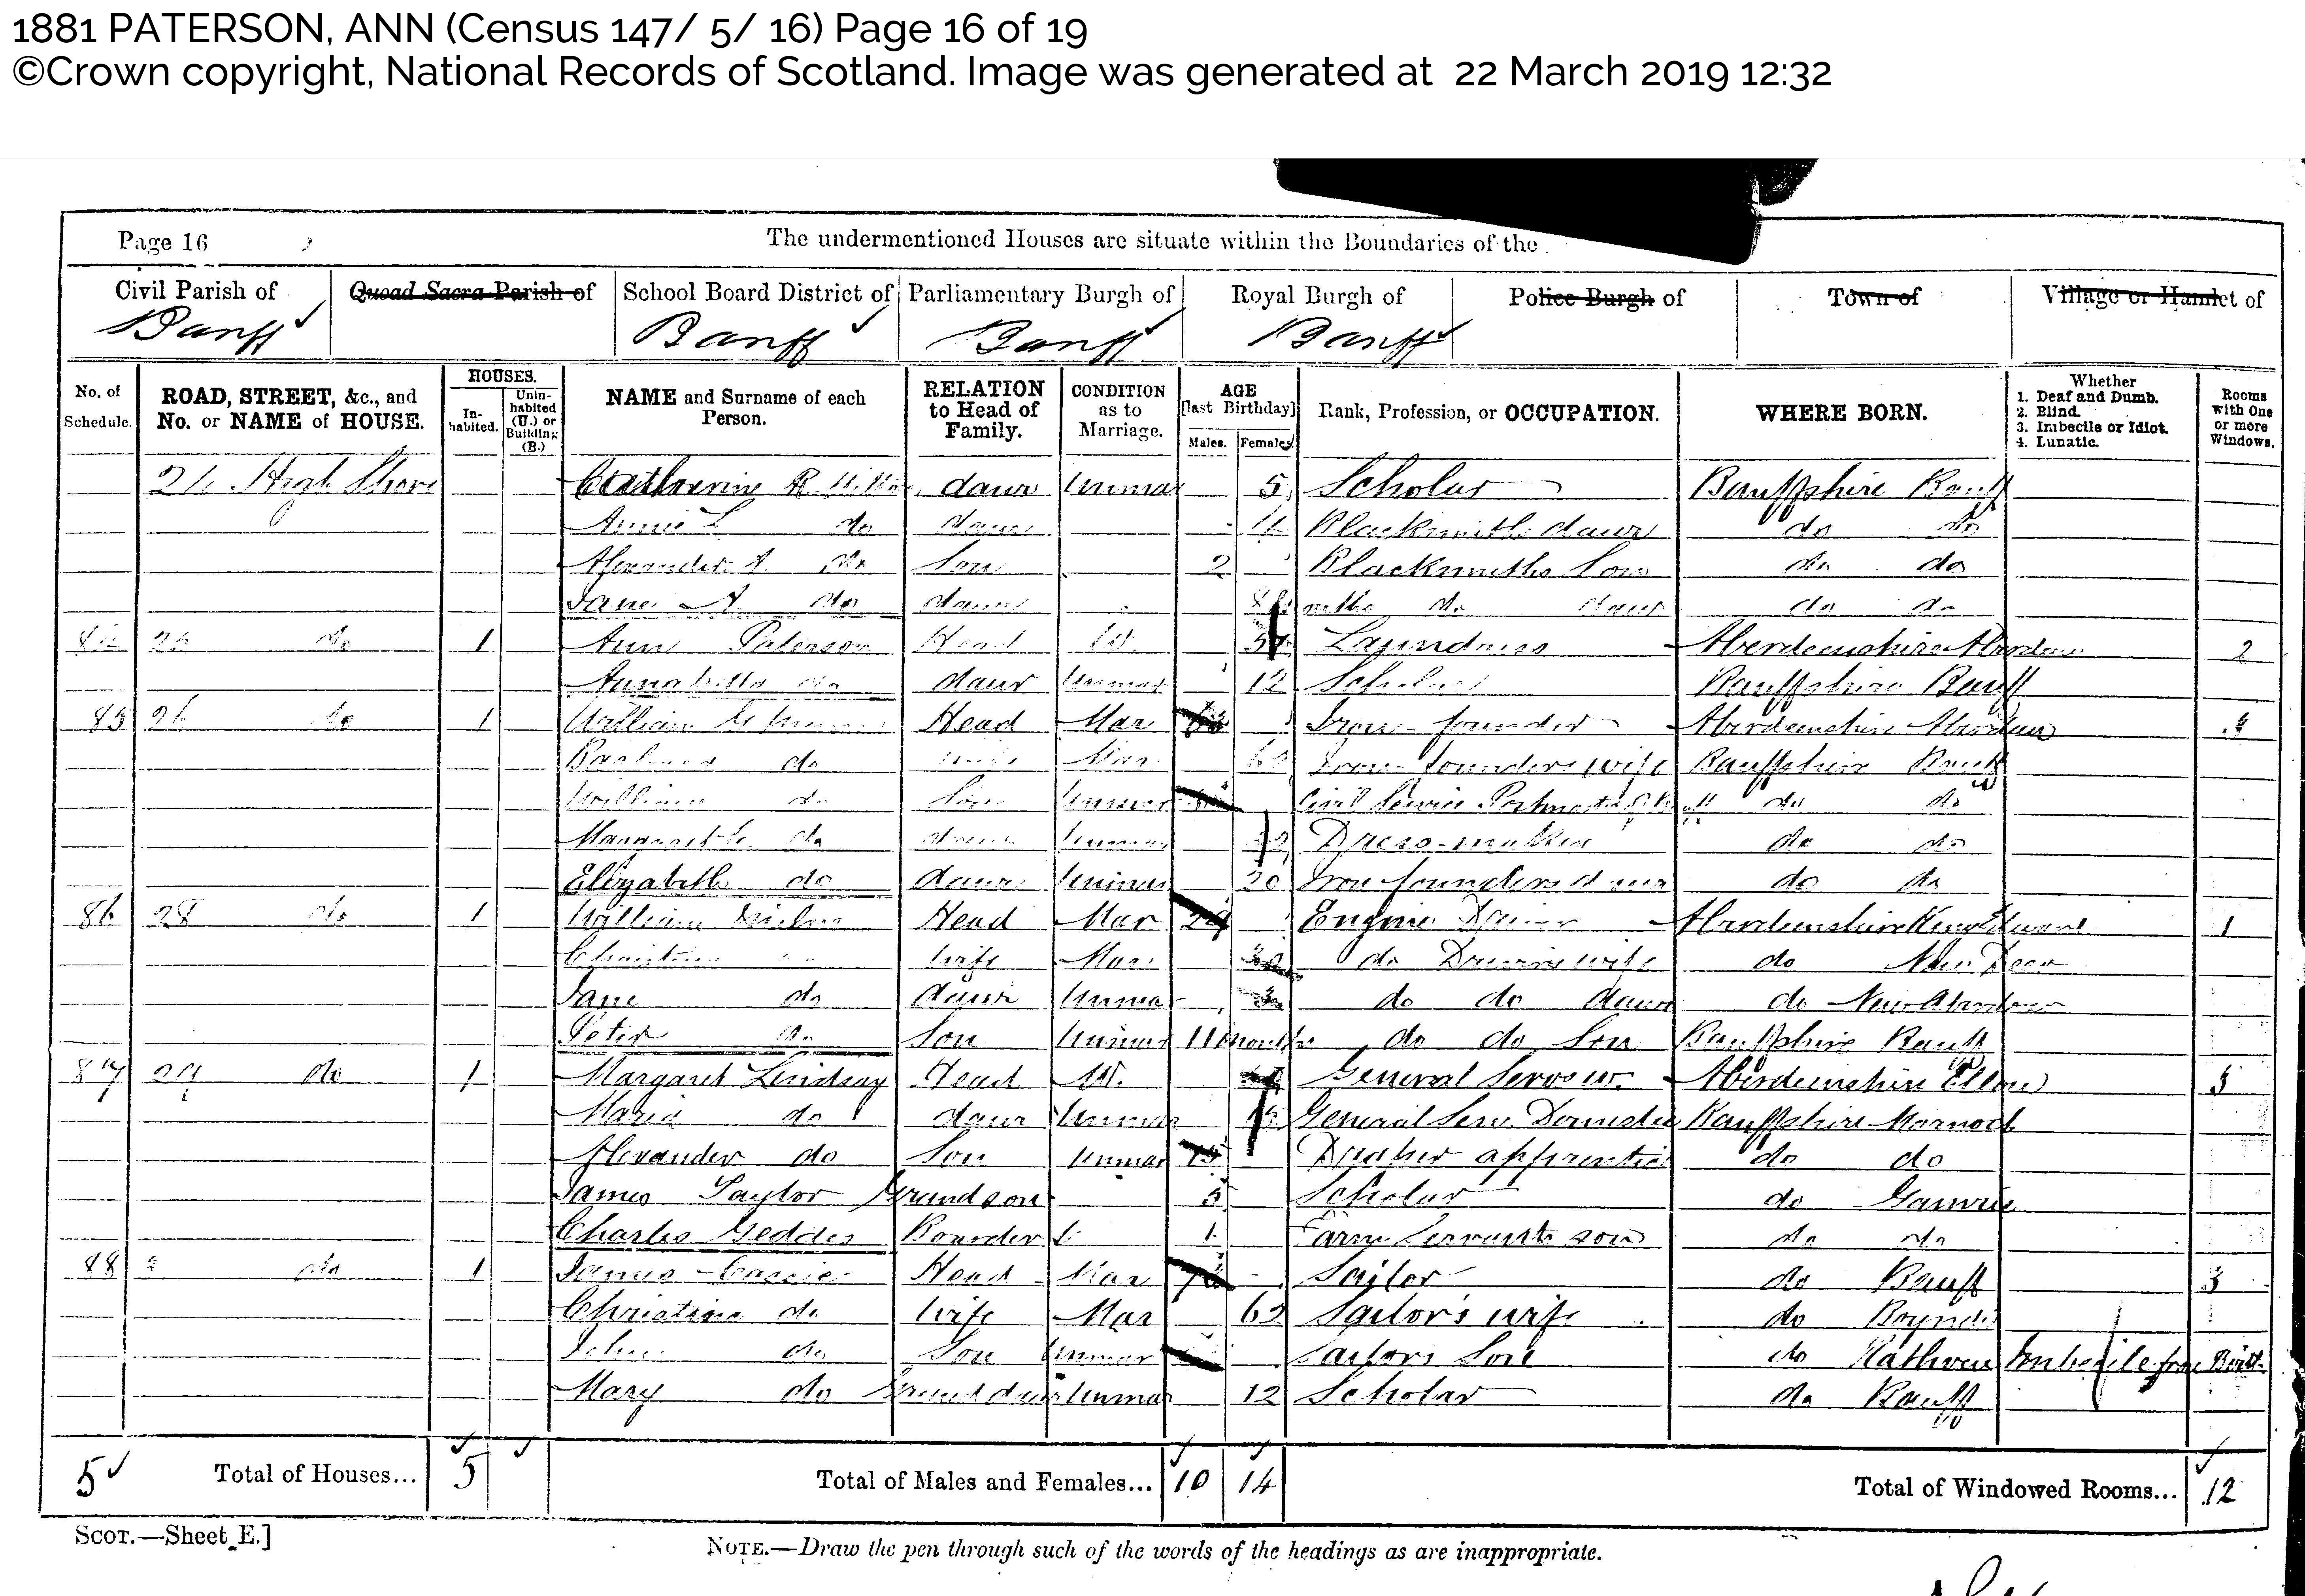 1881 PATERSON, ANN (Census 147/ 5/ 16) Page 16 of 19
©Crown copyright, National Records of Scotland. Image was generated at 22 March 2019 12:32
Page 16 The undermentioned Houses are situate within the Boundaries of the
Civil Parish of Quoad Sacra Parish of School Board District of Parliamentary Burgh of Royal Burgh of Police Burgh of Town of Village or Hamlet of
Banff Banff Banff Banff
No. of Schedule. ROAD, STREET, &c., and No. or NAME of HOUSE. HOUSES. Inhabited. Uninhabited (U.) or Building (B.) NAME and Surname of each Person. RELATION to Head of Family. CONDITION as to Marriage. AGE [last Birthday] Males. Females. Rank, Profession, or OCCUPATION. WHERE BORN. Whether 1. Deaf and Dumb. 2. Blind. 3. Imbecile or Idiot. 4. Lunatic. Rooms with One or more Windows.
High Shore Catherine R. daur Unmar 5 Scholar Banffshire Banff
Annie L do daur Blacksmiths daur do do
Alexander A. do Son 2 Blacksmiths Son do do
Jane A do daur mths do daur do do
do 1 Ann Paterson Head W. Laundress Aberdeenshire Aberdeen 2
Annabella do daur Unmar 12 Scholar Banffshire Banff
85 26 do 1 William Head Mar Iron-founder Aberdeenshire Aberdeen 4
Barbara do wife Mar Iron founders wife Banffshire Banff
William do Son Unmar Civil Service do do
Margaret do daur Unmar Dress-maker do do
Elizabeth do daur Unmar 20 Iron founders daur do do
86 28 do 1 William Milne Head Mar 29 Engine Driver Aberdeenshire King Edward 1
Christina do wife Mar do Drivers wife do New Deer
Jane do daur Unmar 3 do do daur do New Aberdour
Peter do Son Unmar 11 months do do Son Banffshire Banff
87 29 do 1 Margaret Lindsay Head W. General Servant Aberdeenshire Ellon
Maria do daur Unmar General Serv. Domestic Banffshire Marnoch
Alexander do Son Unmar 15 Draper apprentice do do
James Taylor Grandson 5 Scholar do Gamrie
Charles Geddes Boarder 1 Farm Servants son do do
88 do 1 James Cassie Head Mar Saylor do Banff 3
Christina do wife Mar 62 Saylor's wife do Boyndie
John do Son Unmar Saylors Son do Rathven Imbecile from Birth
Mary do Grand daur Unmar 12 Scholar do Banff
5 Total of Houses... 5 Total of Males and Females... 10 14 Total of Windowed Rooms... 12
SCOT.—Sheet E.] NOTE.—Draw the pen through such of the words of the headings as are inappropriate.